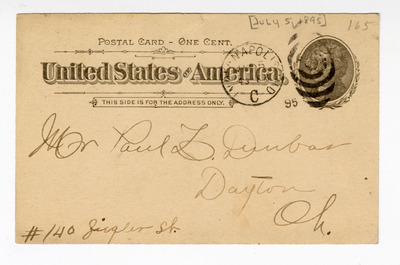 [JULY 5, 1895]
165
POSTAL CARD - ONE CENT.
United States of America.
THIS SIDE IS FOR THE ADDRESS ONLY.
C
95
Mr Paul L. Dunbar
Dayton
Oh.
#140 Ziegler St.